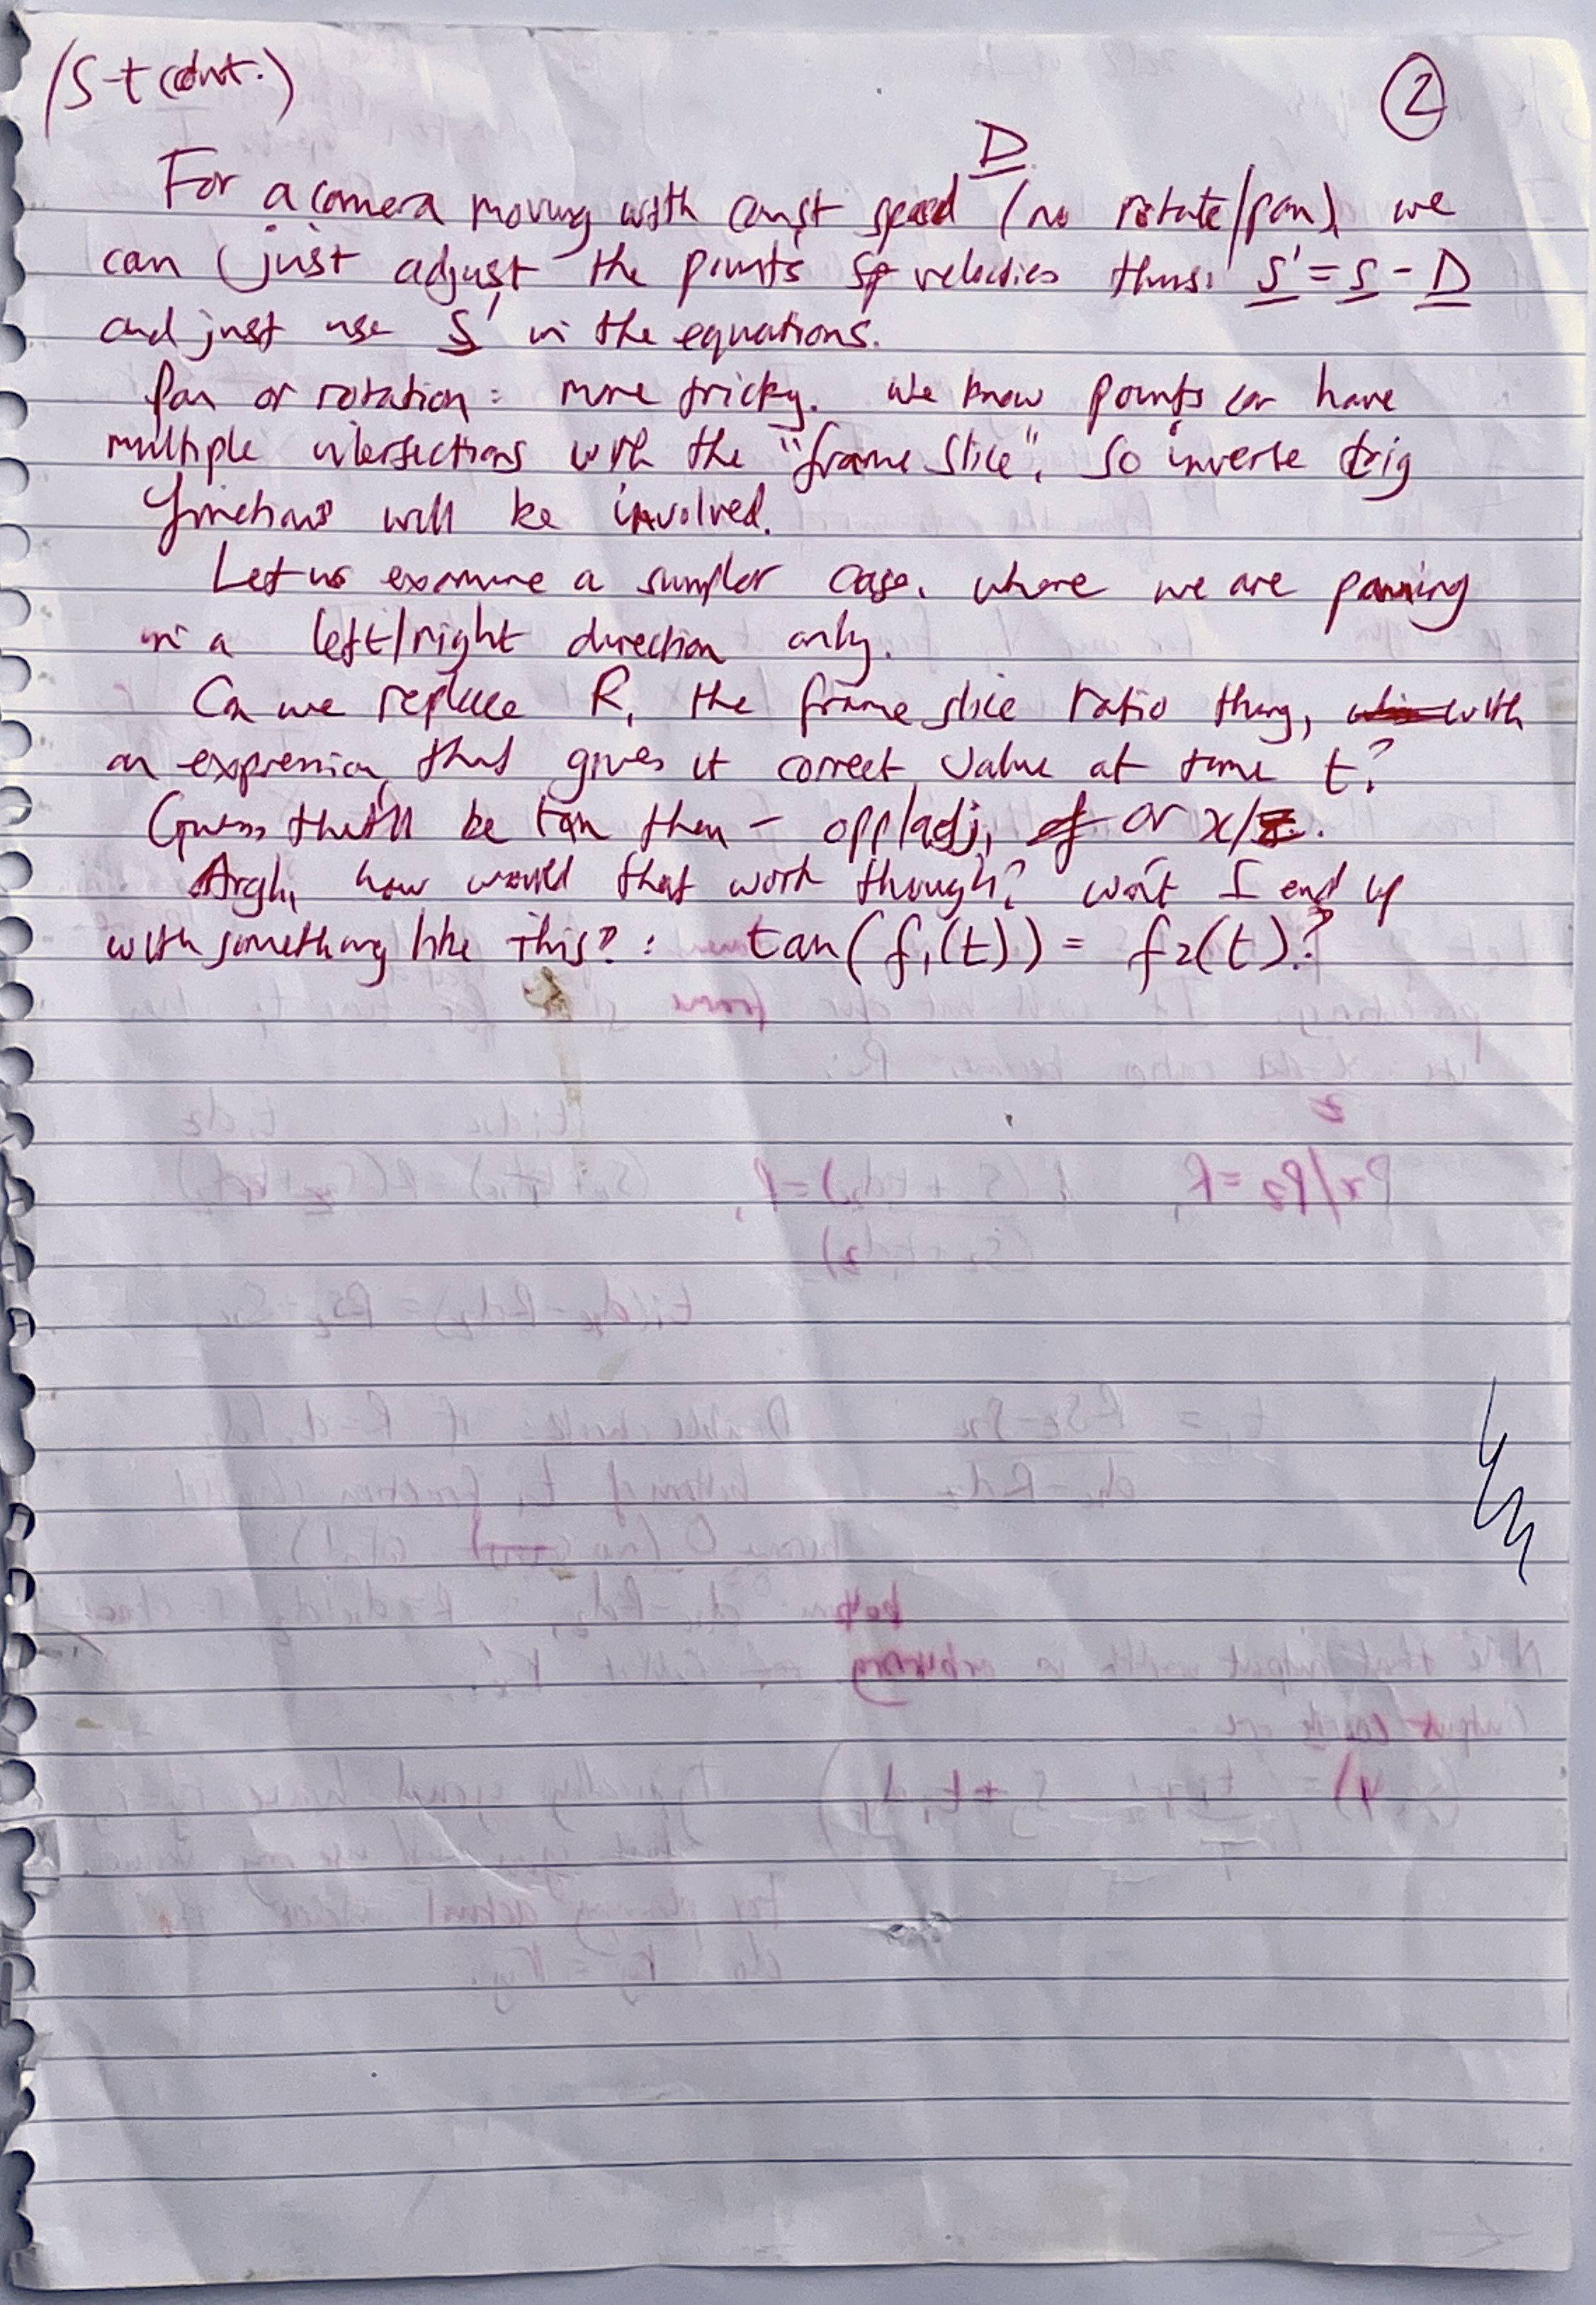 (S-t cont.)
②
D
For a camera moving with const speed (no rotate/pan) we
can just adjust the points velocities thus: S' = S - D
and just use S' in the equations.
Pan or rotation: more tricky. We know points can have
multiple intersections with the "frame slice", so inverse trig
functions will be involved.
Let us examine a simpler case, where we are panning
in a left/right direction only.
Can we replace R, the frame slice ratio thing, with
an expression that gives it correct value at time t?
Guess that'll be tan then - opp/adj, or x/z.
Argh, how would that work though? Won't I end up
with something like this?: tan(f₁(t)) = f₂(t)?